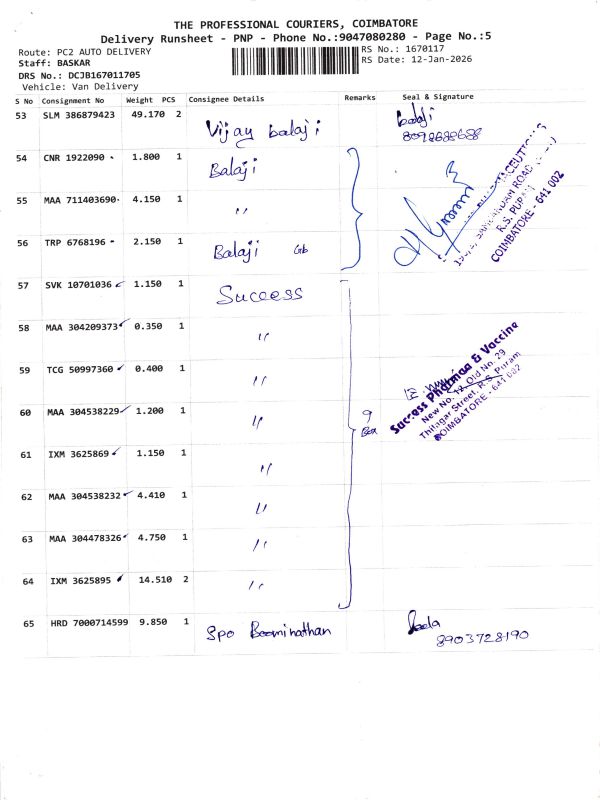 THE PROFESSIONAL COURIERS, COIMBATORE
Delivery Runsheet - PNP - Phone No.:9047080280 - Page No.:5
Route: PC2 AUTO DELIVERY
RS No.: 1670117
Staff: BASKAR
RS Date: 12-Jan-2026
DRS No.: DCJB167011705
Vehicle: Van Delivery
S No Consignment No Weight PCS Consignee Details Remarks Seal & Signature
53 SLM 386879423 49.170 2 Vijay balaji balaji
54 CNR 1922090 1.800 1 Balaji
55 MAA 711403690 4.150 1 "
56 TRP 6768196 2.150 1 Balaji
R.S. PURAM
COIMBATORE - 641 002
57 SVK 10701036 1.150 1 Success
58 MAA 304209373 0.350 1 "
59 TCG 50997360 0.400 1 "
60 MAA 304538229 1.200 1 " 9 Box
Success Pharmaa & Vaccine
New No. 12, Old No. 29
Thilagar Street, R.S. Puram
COIMBATORE - 641 002
61 IXM 3625869 1.150 1 "
62 MAA 304538232 4.410 1 "
63 MAA 304478326 4.750 1 "
64 IXM 3625895 14.510 2 "
65 HRD 7000714599 9.850 1 Spo Boominathan
8903728190